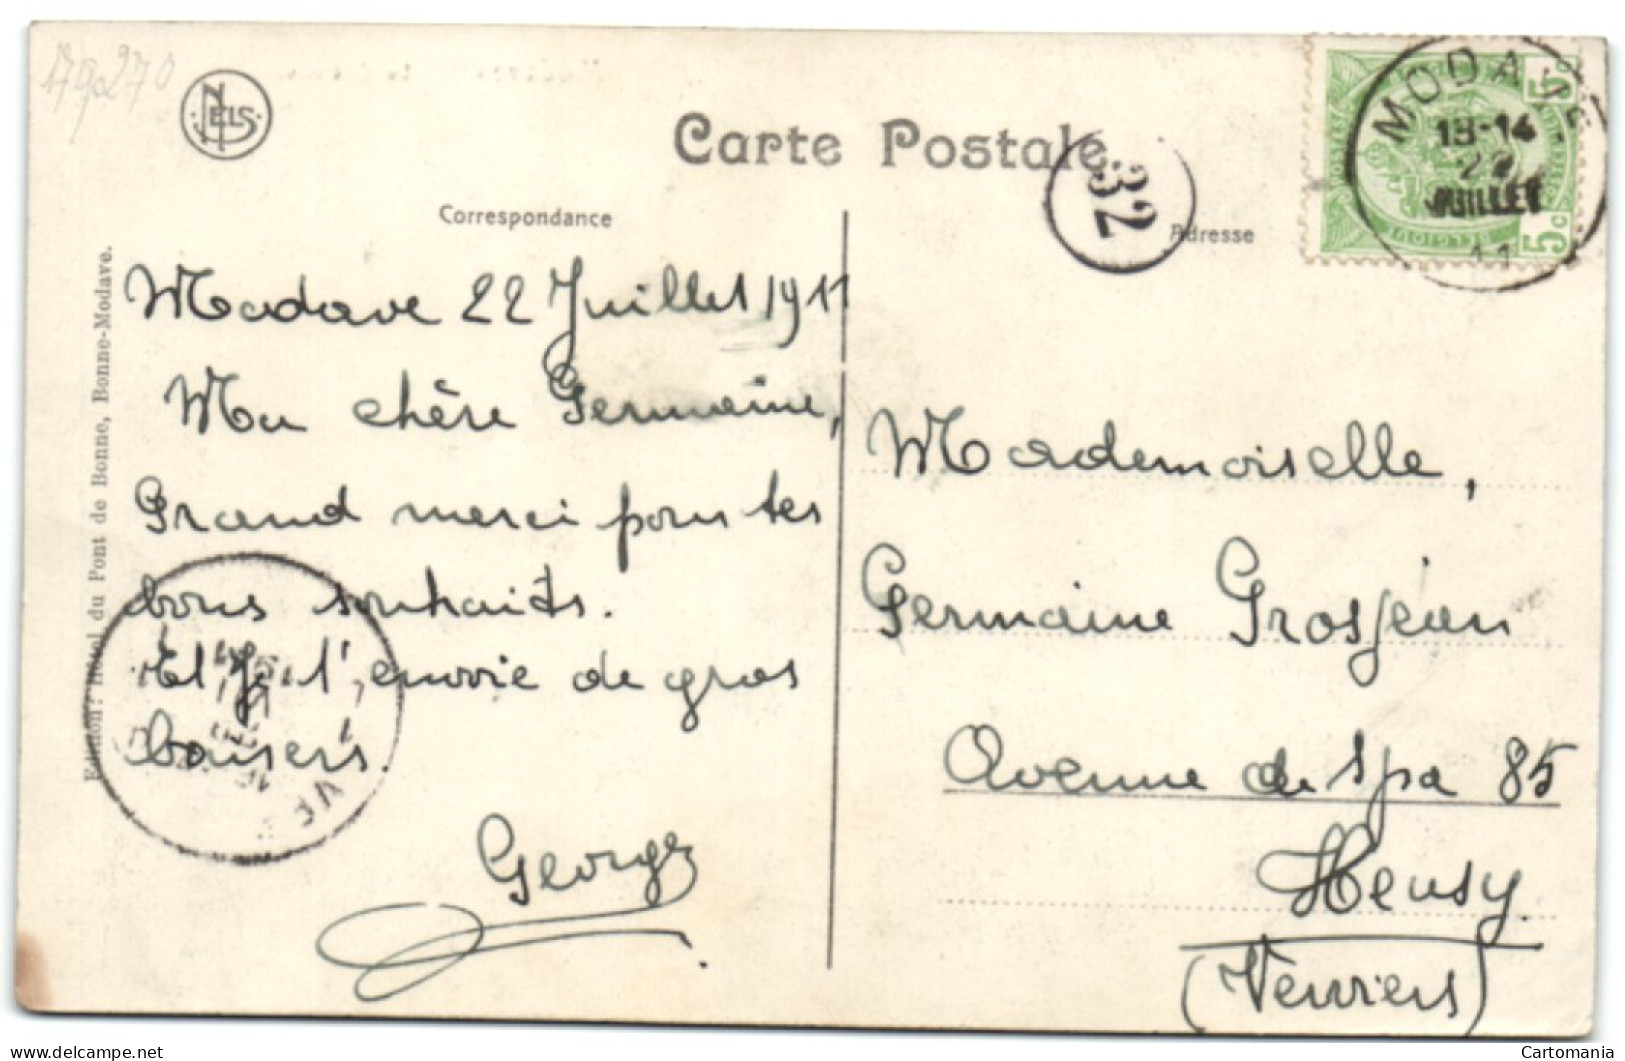 179270
NELS
Carte Postale
32
Correspondance
Adresse
MODAVE
13-14
22
JUILLET
11
5c
5c
Edition: Hôtel du Pont de Bonne, Bonne-Modave.
Modave 22 Juillet 1911
Ma chère Germaine,
Grand merci pour tes
bons souhaits.
Et je t'envoie de gros
baisers.
Georges
Mademoiselle,
Germaine Grosjean
Avenue de Spa 85
Heusy.
(Verviers)
VE
Cartomania